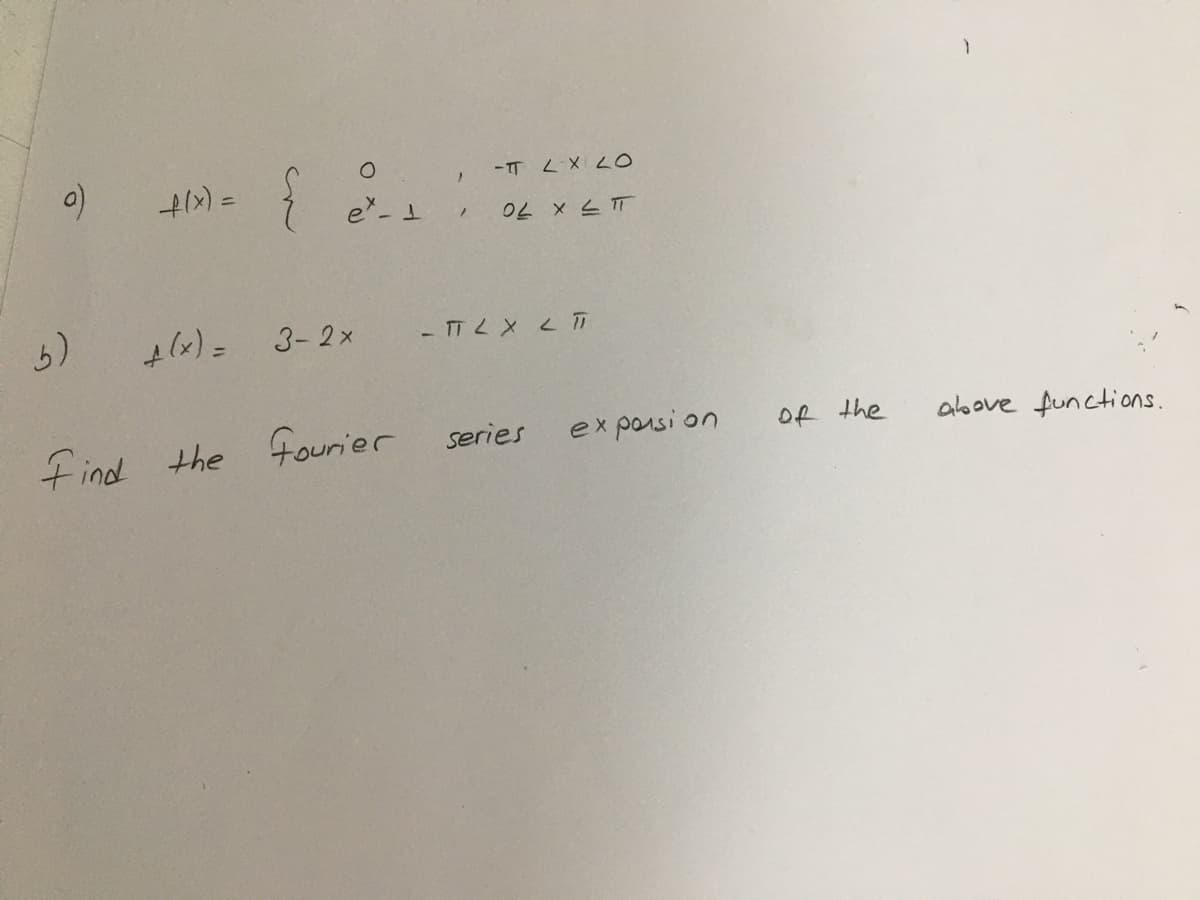 a) f(x) = { 0 , -π < x < 0
e^x - 1 , 0 ≤ x ≤ π
b) f(x) = 3 - 2x -π < x < π
Find the Fourier series expansion of the above functions.